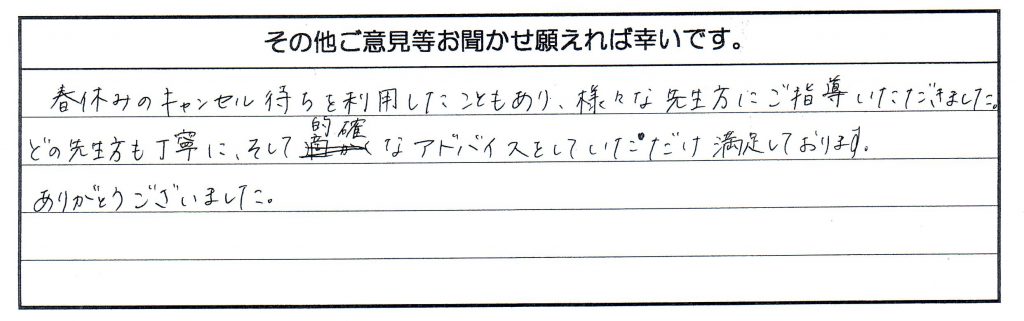 その他ご意見等お聞かせ願えれば幸いです。
春休みのキャンセル待ちを利用したこともあり、様々な先生方にご指導いただきました。
どの先生方も丁寧に、そして的確なアドバイスをしていただけ満足しております。
ありがとうございました。